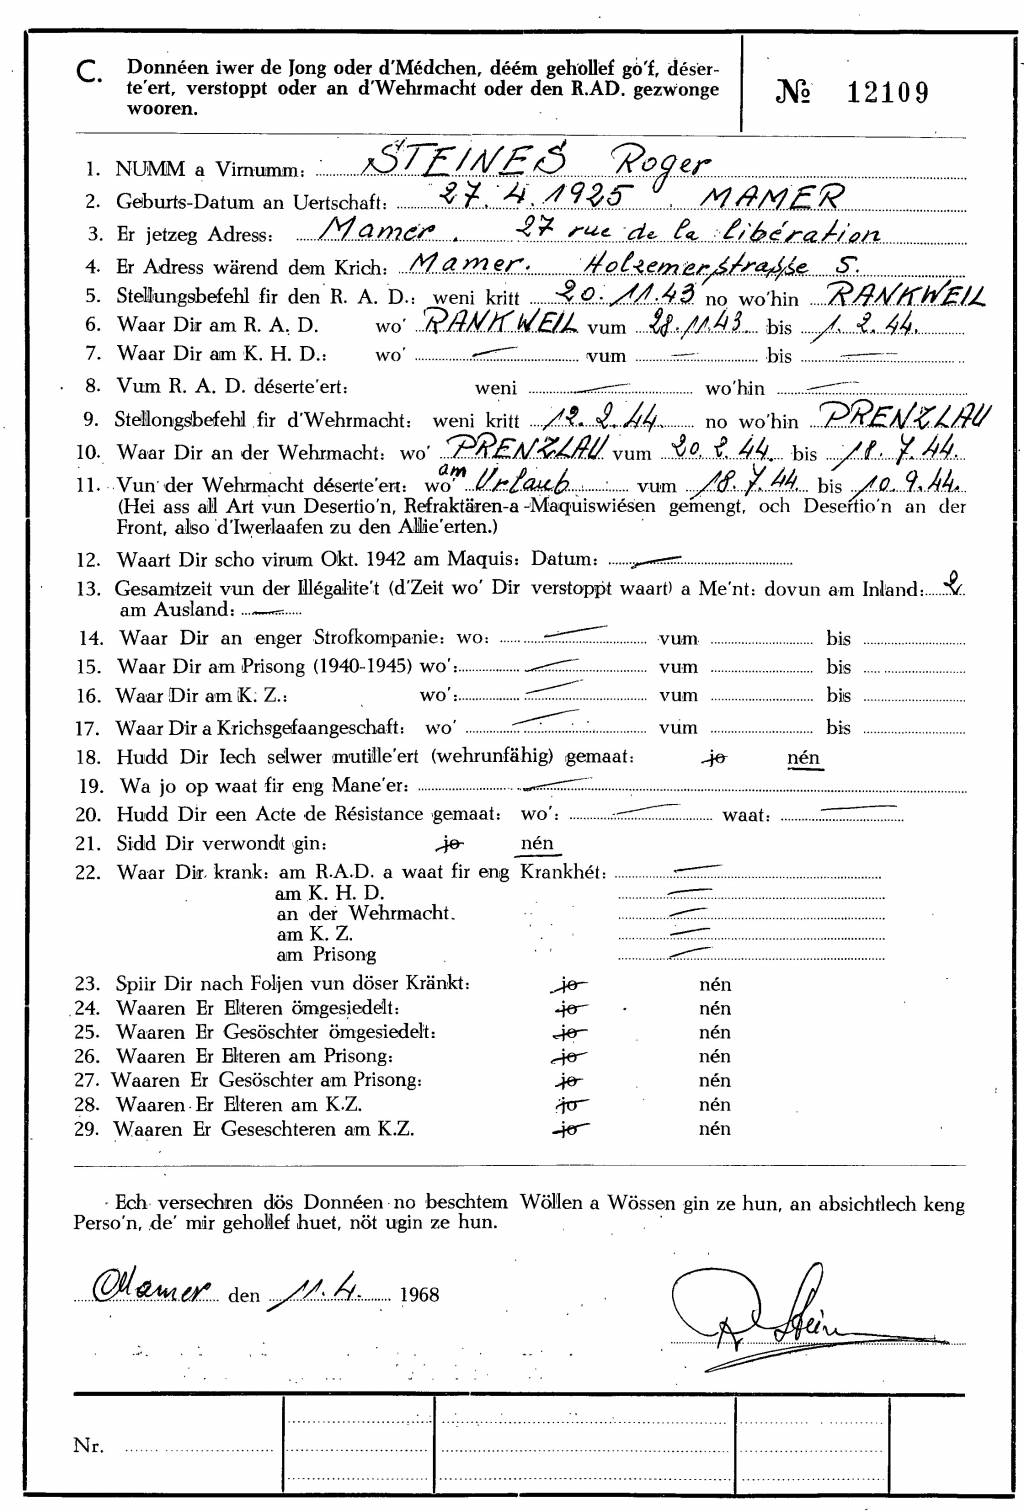 C. Donnéen iwer de Jong oder d'Médchen, déém gehollef gö'f, déser-
te'ert, verstoppt oder an d'Wehrmacht oder den R.AD. gezwonge
wooren.
№ 12109
1. NUMM a Virnumm: STEINES Roger
2. Geburts-Datum an Uertschaft: 27.4.1925 MAMER
3. Er jetzeg Adress: Mamer, 27 rue de la libération
4. Er Adress wärend dem Krich: Mamer. Holzemerstraße 5.
5. Stellungsbefehl fir den R. A. D.: weni kritt 20.11.43 no wo'hin RANKWEIL
6. Waar Dir am R. A. D. wo' RANKWEIL vum 28.11.43. bis 1.2.44.
7. Waar Dir am K. H. D.: wo' — vum — bis —
8. Vum R. A. D. déserte'ert: weni — wo'hin —
9. Stellongsbefehl fir d'Wehrmacht: weni kritt 12.2.44. no wo'hin PRENZLAU
10. Waar Dir an der Wehrmacht: wo' PRENZLAU vum 20.2.44. bis 18.7.44.
11. Vun der Wehrmacht déserte'ert: wo' am Urlaub vum 18.7.44. bis 10.9.44.
(Hei ass all Art vun Desertio'n, Refraktären-a-Maquiswiésen gemengt, och Desertio'n an der
Front, also d'Iwerlaafen zu den Allie'erten.)
12. Waart Dir scho virum Okt. 1942 am Maquis: Datum: —
13. Gesamtzeit vun der Illégalite't (d'Zeit wo' Dir verstoppt waart) a Me'nt: dovun am Inland: 2
am Ausland: —
14. Waar Dir an enger Strofkompanie: wo: — vum bis
15. Waar Dir am Prisong (1940-1945) wo': — vum bis
16. Waar Dir am K. Z.: wo': — vum bis
17. Waar Dir a Krichsgefaangeschaft: wo' — vum bis
18. Hudd Dir Iech selwer mutille'ert (wehrunfähig) gemaat: jo nén
19. Wa jo op waat fir eng Mane'er: —
20. Hudd Dir een Acte de Résistance gemaat: wo': — waat: —
21. Sidd Dir verwondt gin: jo nén
22. Waar Dir krank: am R.A.D. a waat fir eng Krankhét: —
am K. H. D. —
an der Wehrmacht. —
am K. Z. —
am Prisong —
23. Spiir Dir nach Foljen vun döser Kränkt: jo nén
24. Waaren Er Elteren ömgesiedelt: jo nén
25. Waaren Er Gesöschter ömgesiedelt: jo nén
26. Waaren Er Elteren am Prisong: jo nén
27. Waaren Er Gesöschter am Prisong: jo nén
28. Waaren Er Elteren am K.Z. jo nén
29. Waaren Er Geseschteren am K.Z. jo nén
Ech versechren dös Donnéen no beschtem Wöllen a Wössen gin ze hun, an absichtlech keng
Perso'n, de' mir gehollef huet, nöt ugin ze hun.
Mamer den 11.4. 1968
Nr.